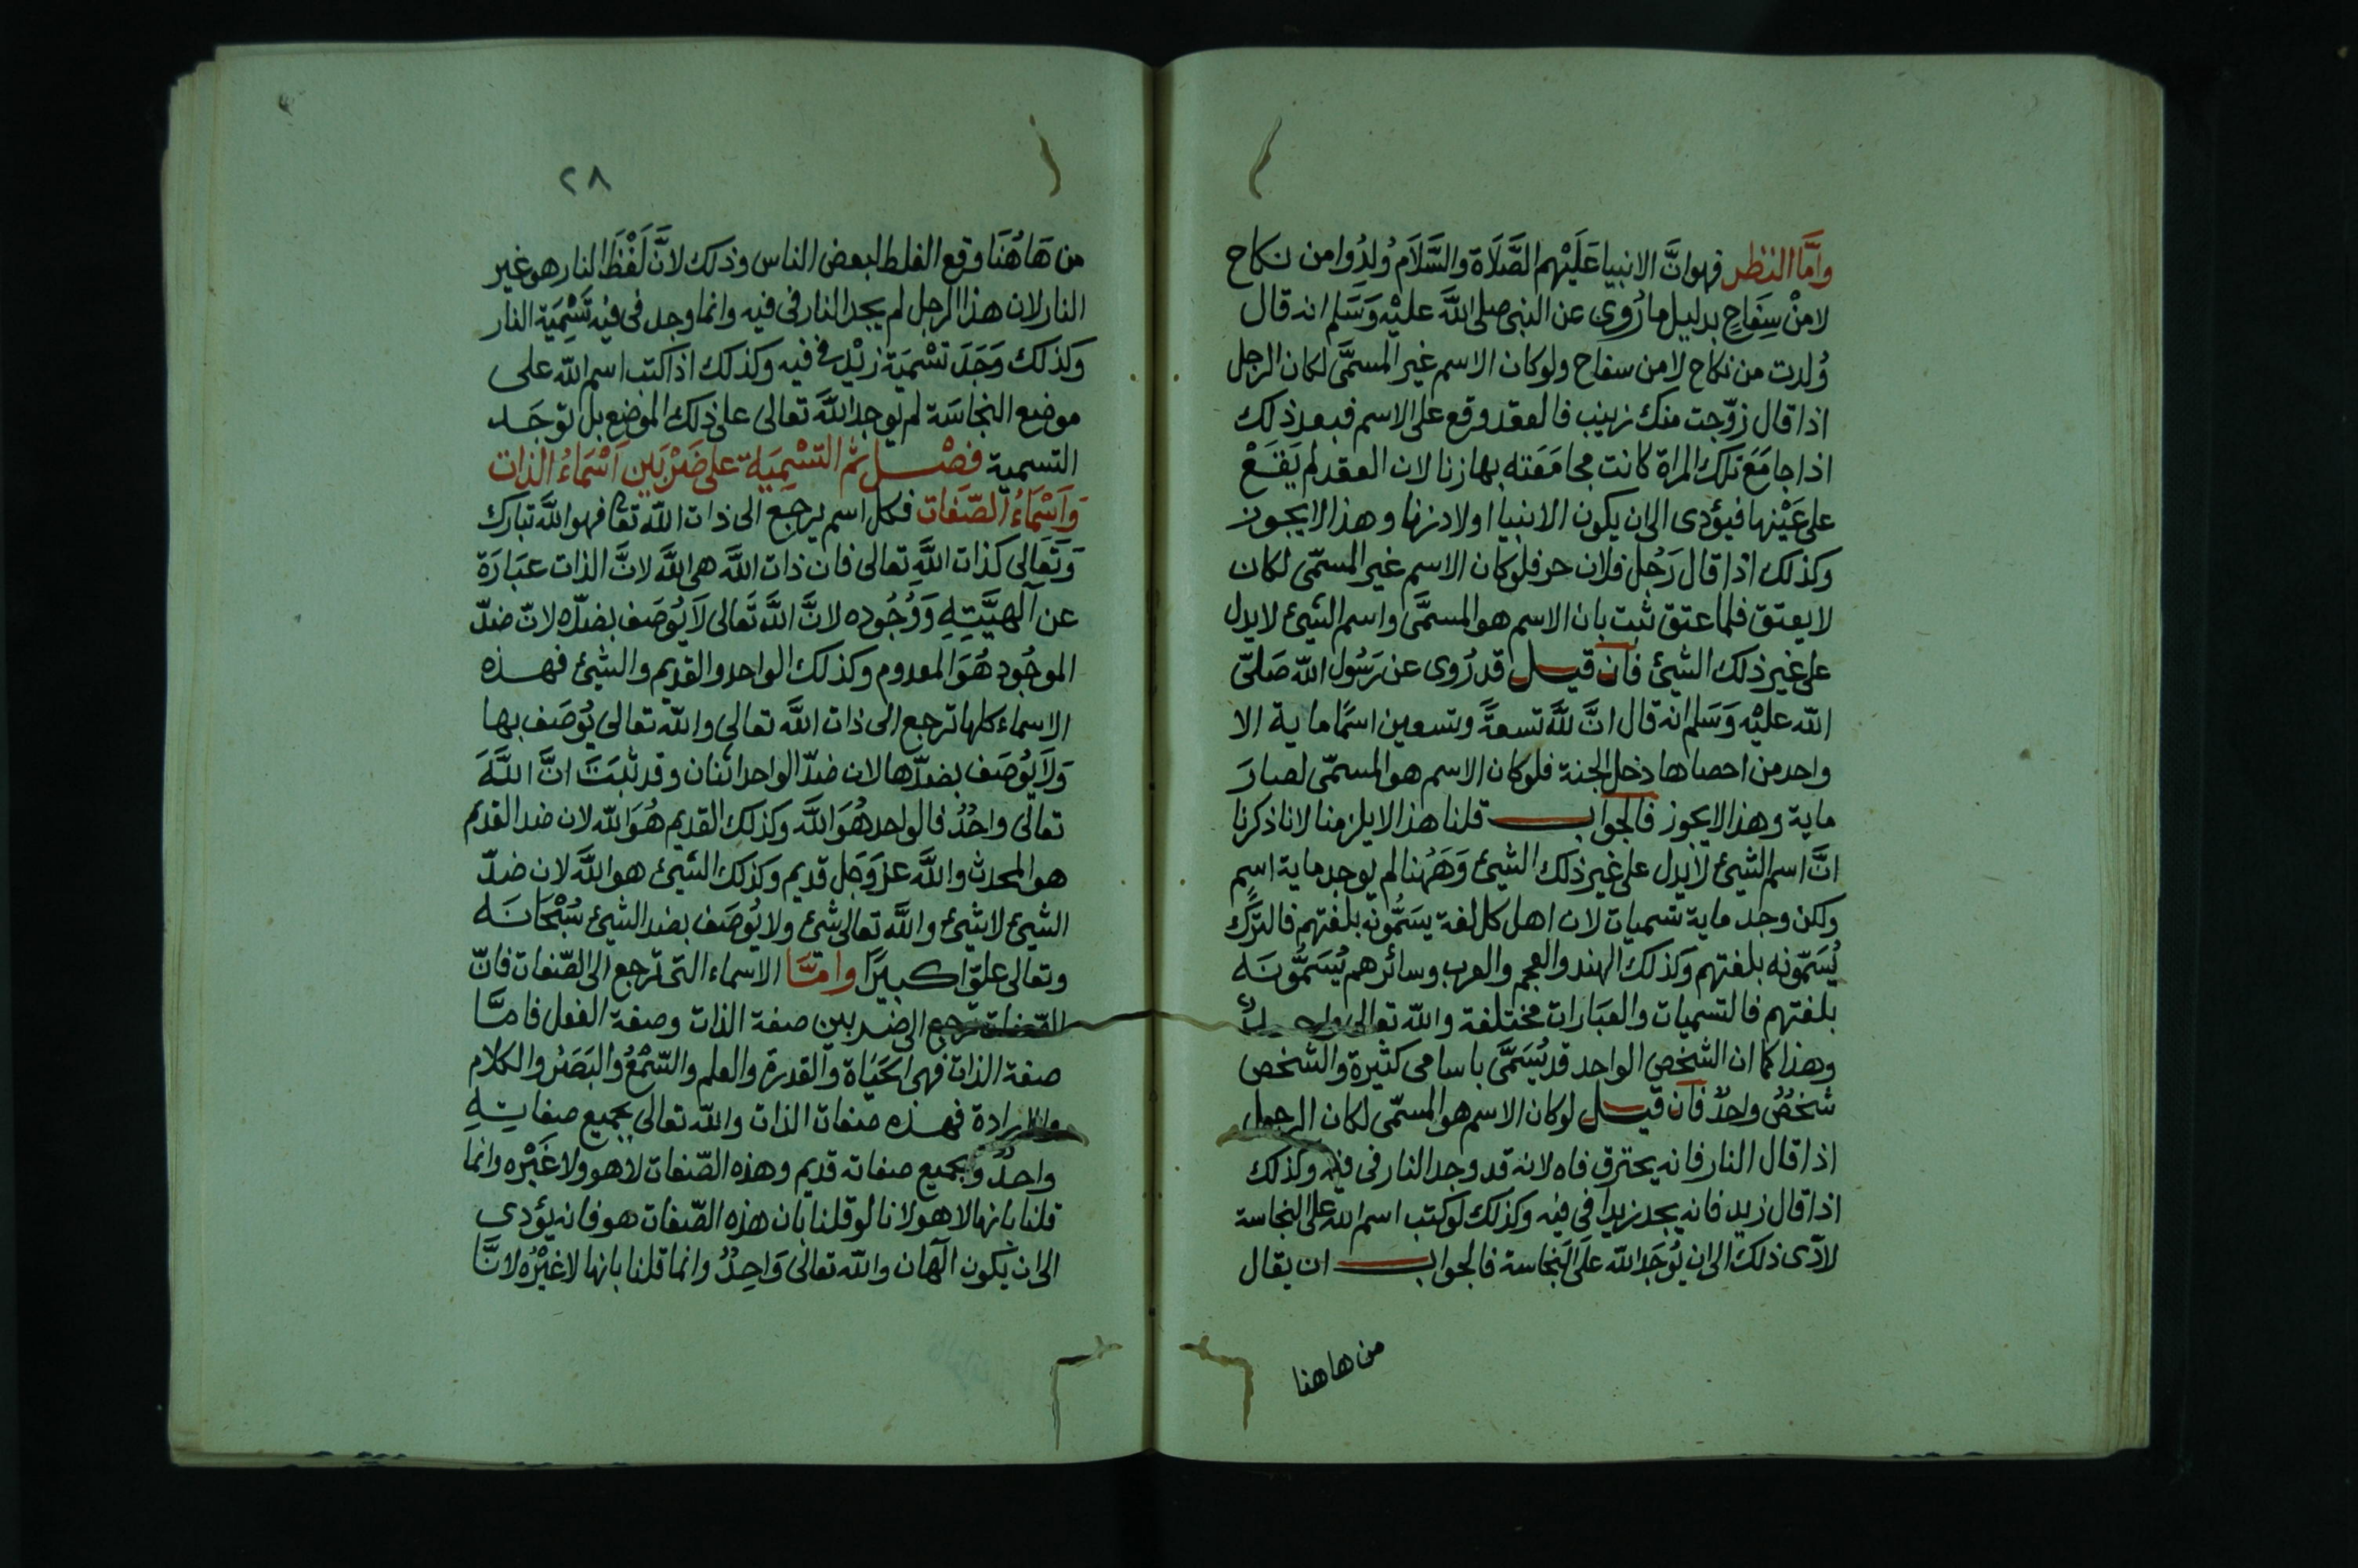 وأمَّا النظر فهو انَّ الانبيا عَلَيْهم الصَّلَاة والسَّلَام وُلِدُوا من نكاح
لا منْ سِفَاحٍ بدليل ما رُوى عن النبى صلى اللَّه عليْه وَسَلم انه قال
وُلدت من نكاح لا من سفاح ولو كان الاسم غير المسمَّى لكان الرجل
اذا قال زوّجت منك زينب فالعقد وقع على الاسم فبعد ذلك
اذا جامَعَ تلك المراة كانت مجامَعَته بها زنا لان العقد لم يَقَعْ
على عَيْنها فيؤدى الى ان يكون الانبيا اولاد زنا وهذا لا يجوز
وكذلك اذا قال رَجُل فلان حر فلو كان الاسم غير المسمّى لكان
لا يعتق فلما عتق ثبت بان الاسم هو المسمَّى واسم الشيئ لا يدل
على غير ذلك الشيئ فان قيل قد رُوى عن رَسُول اللّه صَلىّ
اللّه عليْه وَسَلم انه قال انَّ للَّه تسعةً وتسعين اسمًا ماية الا
واحد من احصاها دخل الجنة فلو كان الاسم هو المسمّى لصارَ
ماية وهذا لا يجوز فالجواب قلنا هذا لا يلزمنا لانا ذكرنا
انَّ اسم الشيئ لا يدل على غير ذلك الشيئ وَهَهُنا لم يوجد ماية اسمٍ
ولكن وجد ماية تسميات لان اهل كل لغة يسَمُّونه بلغتهم فالترْك
يُسَمّونه بلغتهم وكذلك الهند والعجم والعرب وسائرهم يُسَمُّونَه
بلغتهم فالتسميات والعبَارات مختلفة واللّه تعالى واحدٌ
وهذا كما ان الشخص الواحد قد يُسَمَّى باسامى كثيرة والشخص
شخصٌ واحدٌ فان قيل لو كان الاسم هو المسمّى لكان الرجل
اذا قال النار فانه يحترق فاه لانه قد وجد النار فى فيه وكذلك
اذا قال زيد فانه يجد زيدا فى فيه وكذلك لو كتب اسم اللّه على النجاسة
لادّى ذلك الى ان يُوجَد اللّه علَى النجاسة فالجواب ان يقال
من هاهنا
٢٨
من هَاهُنَا وقع الغلط لبعض الناس وذلك لانَّ لَفْظَ النار هو غير
النار لان هذا الرجل لم يجد النار فى فيه وانما وجد فى فيه تَسْمِيَة النار
وكذلك وَجَدَ تسْمِيَة زيْد فى فيه وكذلك اذا كتب اسم اللّه على
موضع النجاسَة لم يوجد اللَّه تعالى على ذلك الموْضع بل توجَد
التسمية فصْل ثم التسْمِيَة على ضَرْبَين اَسْمَاءُ الذات
وَاَسْمَاءُ الصّفَات فكل اسم يرجع الى ذات اللّه تعا فهو اللَّه تبارك
وَتَعَالى كذات اللَّهِ تعالى فان ذات اللَّه هى اللَّه لانَّ الذات عبَارَة
عن آلهيَّتِهِ وَوُجُوده لانَّ اللَّه تَعَالى لَا يُوصَف بضدّه لانّ ضدّ
الموجُود هُوَ المعدوم وكذلك الواحد والقديم والشيئ فهذه
الاسماء كلها ترجع الى ذات اللَّه تعالى واللّه تعالى يُوصَف بها
وَلَا يُوصَف بضدّها لان ضدّ الواحد اثنان وقد ثبَتَ انَّ اللَّهَ
تعالى واحدٌ فالواحد هُوَ اللَّه وكذلك القديم هُوَ اللّه لان ضد القديم
هو المحدث واللَّه عزَّ وَجَل قديم وكذلك الشيئ هو اللَّه لان ضدّ
الشيئ لا شيئ واللَّه تعالى شئ ولا يُوصَف بضد الشيئ سُبْحَانَه
وتعالى علوّا كبيرًا وامَّا الاسماء التى ترجع الى الصّفات فانّ
الصّفات ترجع الى ضربين صفة الذات وصفة الفعل فامَّا
صفة الذات فهى الحَيَاة والقدرة والعلم والسّمْعُ والبَصَرُ والكلام
والارادة فهذه صفات الذات واللّه تعالى بجميع صفاتِهِ
واحدٌ وبجميع صفاته قديم وهذه الصّفات لا هو ولا غَيْره وانما
قلنا بانها لا هو لانا لو قلنا بان هذه الصّفات هو فانه يؤدى
الى ان يكون آلهان واللّه تعالى وَاحِدٌ وانما قلنا بانها لا غيْرُه لانَّا